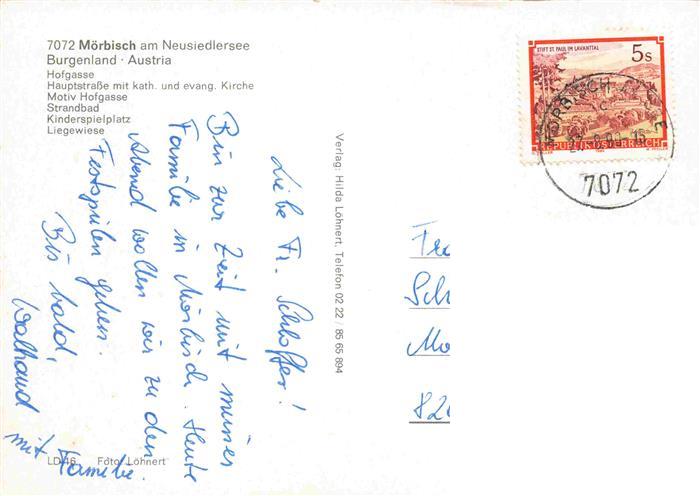 7072 Mörbisch am Neusiedlersee
Burgenland · Austria
Hofgasse
Hauptstraße mit kath. und evang. Kirche
Motiv Hofgasse
Strandbad
Kinderspielplatz
Liegewiese
Liebe Fr. Schloffer!
Bin zur Zeit mit meiner
Familie in Mörbisch. Heute
Abend wollen wir zu den
Festspielen gehen.
Bis bald,
Walthaud
mit Familie.
LD 46 Foto Löhnert
Verlag: Hilda Löhnert, Telefon 02 22 / 85 65 894
STIFT ST. PAUL IM LAVANTTAL
5s
REPUBLIK ÖSTERREICH
7072
Fra
Sch
Mo
820